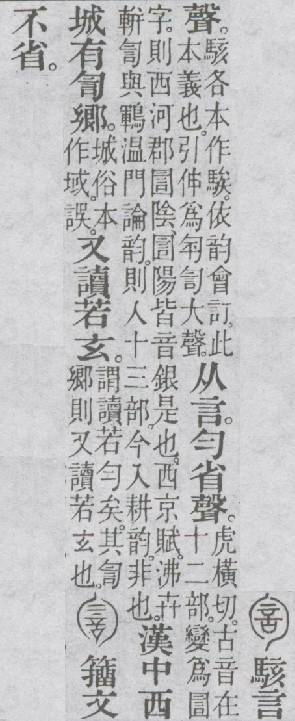 駭言
聲。駭各本作騃。依韵會訂。此本義也。引伸爲訇訇大聲。从言。勻省聲。虎橫切。古音在十二部。變爲圁
字。則西河郡圁陰、圁陽皆音銀是也。西京賦。沸卉軿訇與鶤溫門論韵。則入十三部。今入耕韵。非也。漢中西
城有訇鄉。城俗本作域。誤。又讀若玄。謂讀若勻矣。其訇鄉則又讀若玄也。籒文
不省。